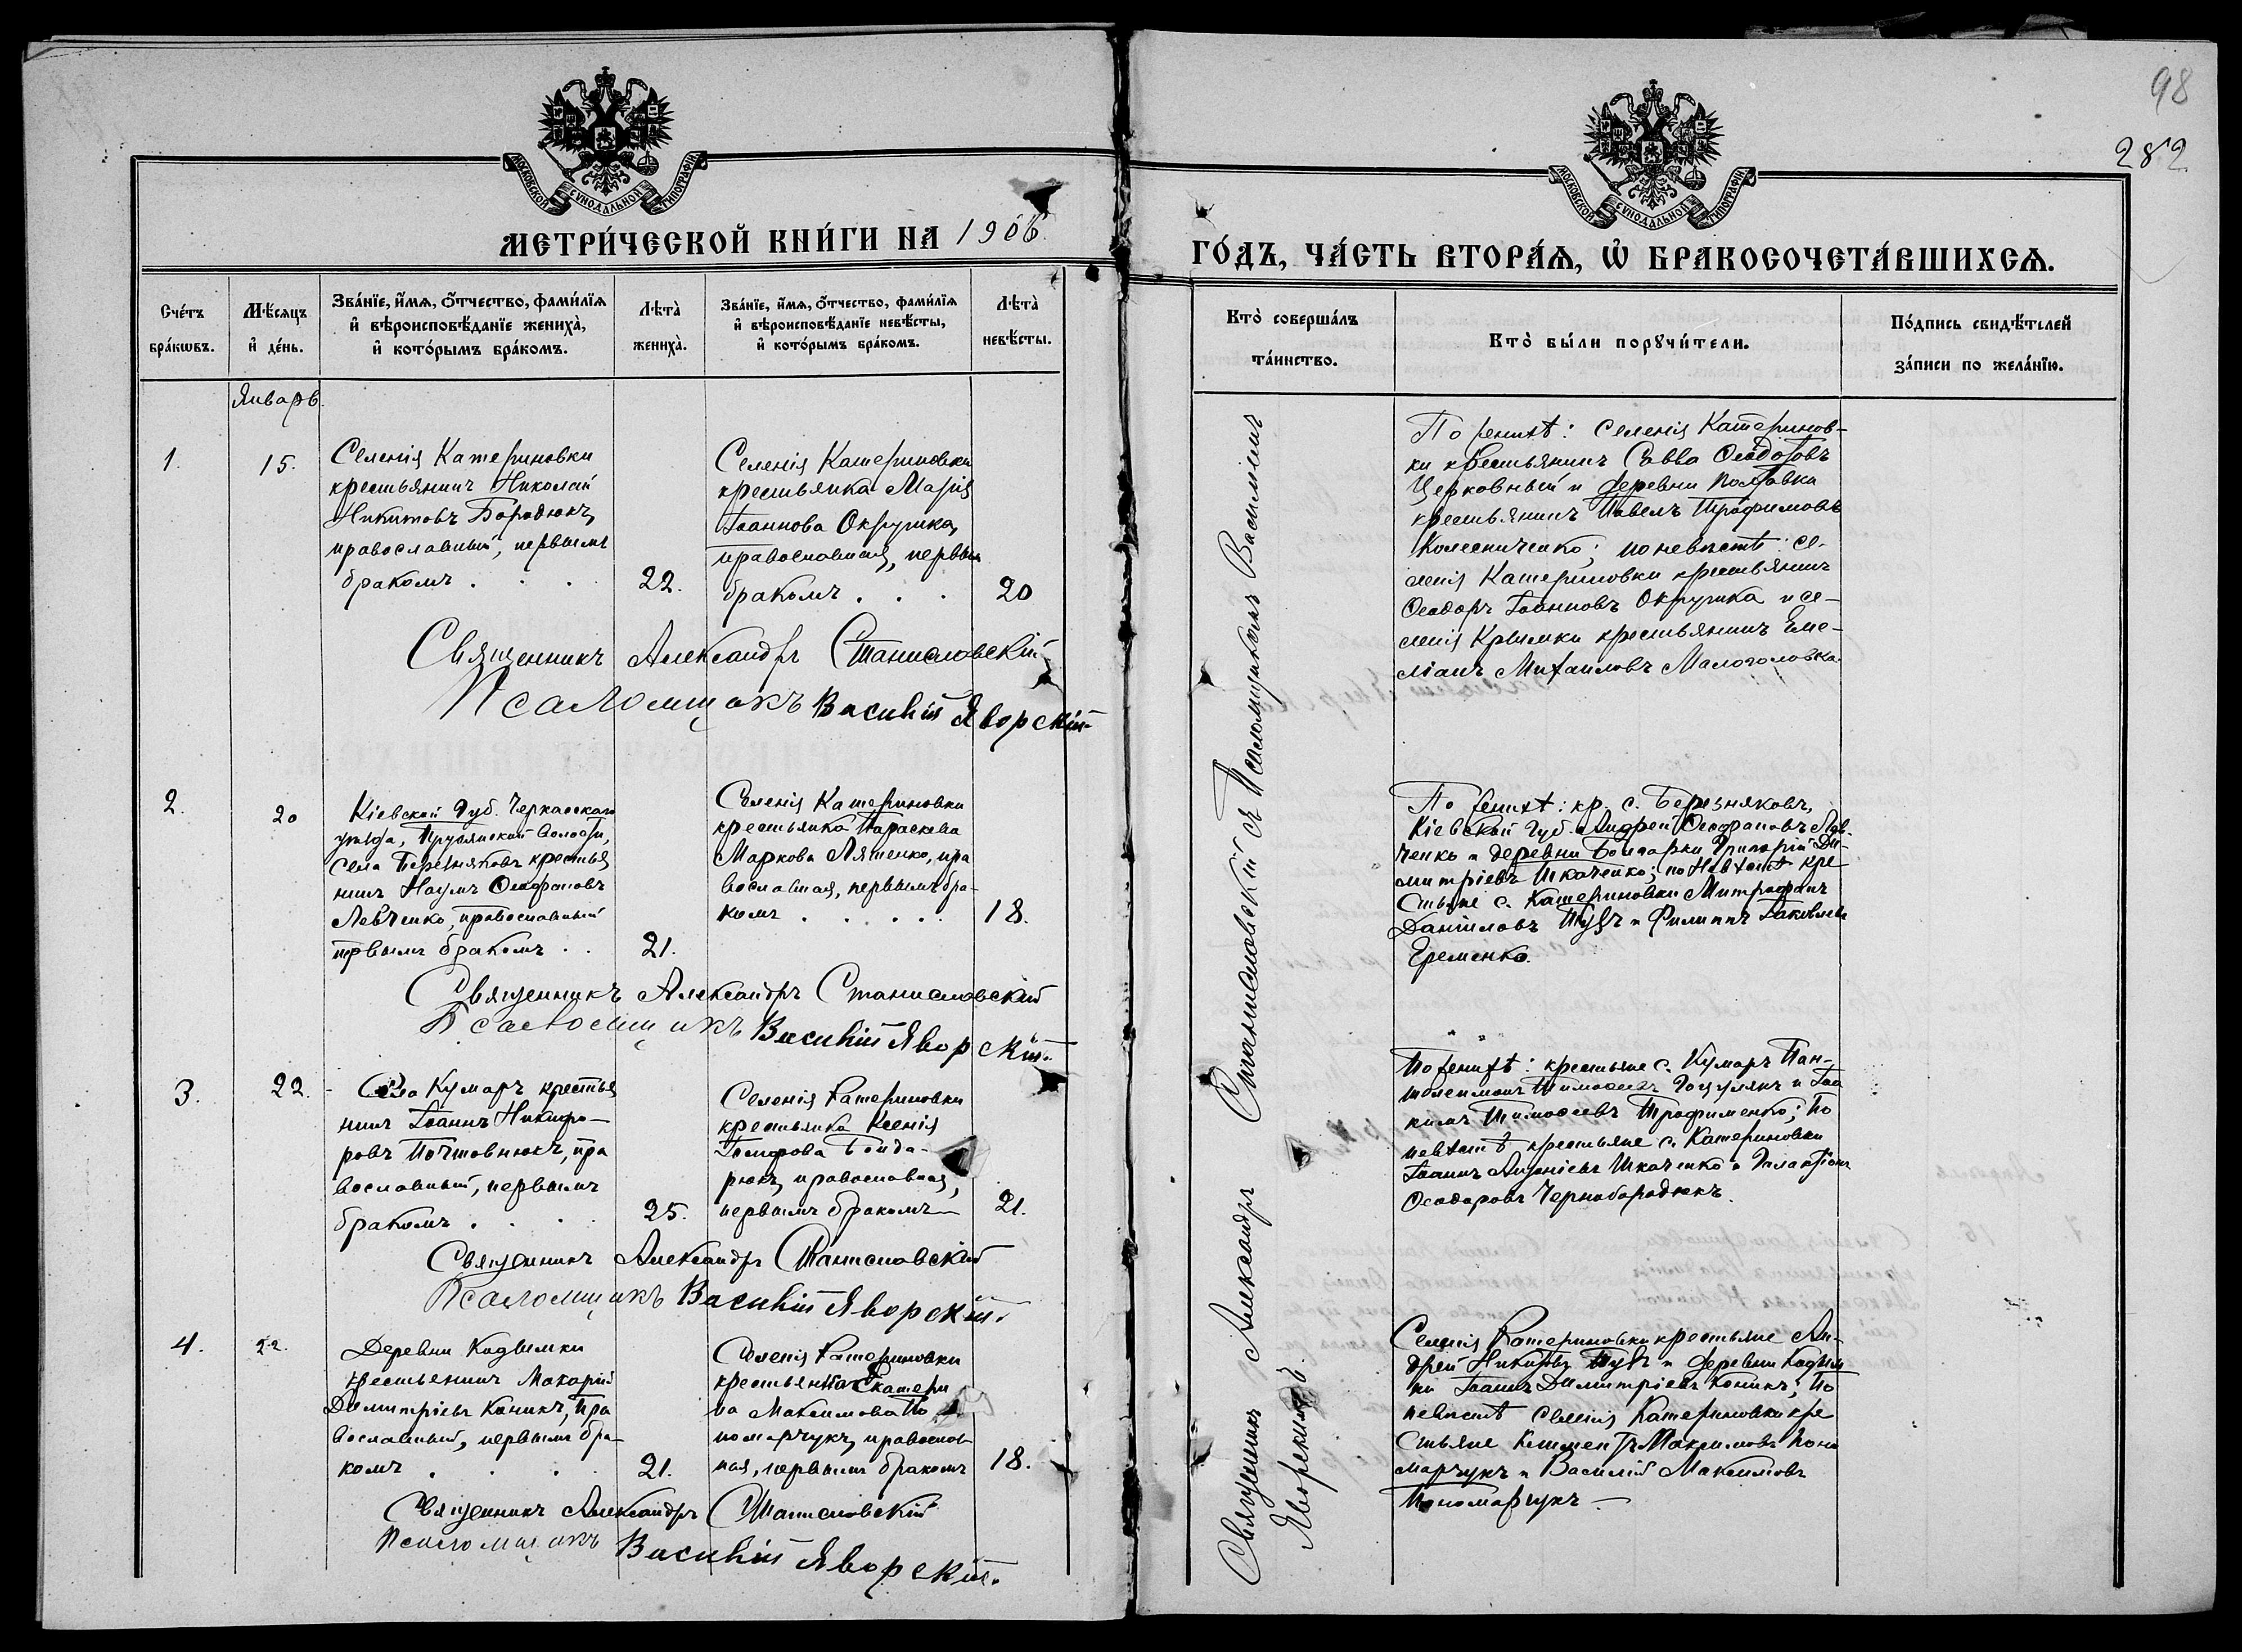 98
282
МОСКОВСКОЙ СѴНОДАЛЬНОЙ ТИПОГРАФІИ
МЕТРИ́ЧЕСКОЙ КНИ́ГИ НА 1906.
Сче́тъ бра́кѡвъ.
Мѣ́сяцъ и҆ де́нь.
Зва́нїе, и҆́мѧ, ѻ҆́тчество, фами́лїѧ
и҆ вѣроисповѣ́данїе жениха̀,
и҆ кото́рымъ бра́комъ.
Лѣ́та̀ жениха̀.
Зва́нїе, и҆́мѧ, ѻ҆́тчество, фами́лїѧ
и҆ вѣроисповѣ́данїе невѣ́сты,
и҆ кото́рымъ бра́комъ.
Лѣ́та̀ невѣ́сты.
Январь.
1.
15.
Селенія Катериновки
крестьянинъ Николай
Никитовъ Бородюкъ,
православный, первымъ
бракомъ . . .
22.
Селенія Катериновки
крестьянка Марія
Іоаннова Окрушка,
православная, первым
бракомъ . . .
20
Священникъ Александръ Станиславскій
Псаломщикъ Василій Яворскій.
2.
20
Кіевской Губ. Черкасскаго
уѣзда, волости,
села Березняковъ крестья
нинъ Наумъ Ѳеофановъ
Левченко, православный
первымъ бракомъ . .
21.
Селенія Катериновки
крестьянка Параскева
Маркова Ляшенко, пра
вославная, первымъ бра-
комъ . . . . .
18.
Священникъ Александръ Станиславскій
Псаломщикъ Василій Яворскій.
3.
22.
Села Кумаръ крестья
нинъ Іоаннъ Никифо-
ровъ Почтовнюкъ, пра
вославный, первымъ
бракомъ . . .
25.
Селенія Катериновки
крестьянка Ксенія
Бонда-
рюкъ, православная,
первымъ бракомъ
21.
Священникъ Александръ Станиславскій
Псаломщикъ Василій Яворскій.
4.
22.
Деревни Кодымки
крестьянинъ Макарій
Димитріевъ Коникъ, пра
вославный, первымъ бра-
комъ . . . .
21.
Селенія Катериновки
крестьянка Екатери
на Максимова По
номарчукъ, православ
ная, первымъ бракомъ
18.
Священникъ Александръ Станиславскій
Псаломщикъ Василій Яворскій.
МОСКОВСКОЙ СѴНОДАЛЬНОЙ ТИПОГРАФІИ
ГО́ДЪ, ЧА́СТЬ ВТОРА́Ѧ, Ѽ БРАКОСОЧЕТА́ВШИХСѦ.
Кто̀ соверша́лъ та́инство.
Кто̀ бы́ли порꙋчи́тели.
По́дпись свидѣ́телей за́писи по жела́нїю.
Священникъ Александръ Станиславскій съ Псаломщикомъ Василіемъ
Яворскимъ.
По женихѣ: селенія Катеринов-
ки крестьянинъ Савва Ѳеодотовъ
Церковный и деревни Полтавка
крестьянинъ Павелъ Трофимовъ
Колесниченко; по невѣстѣ: се-
ленія Катериновки крестьянинъ
Ѳеодоръ Іоанновъ Окрушка и се-
ленія Крымки крестьянинъ Еме-
ліанъ Михаиловъ Малоголовка.
По женихѣ: кр. с. Березняковъ,
Кіевской губ. Андрей Ѳеофановъ Лев-
ченко и деревни Болгарки Григорій Ди-
митріевъ Шкаченко; по невѣстѣ кре
стьяне с. Катериновки Митрофанъ
Даніиловъ и Филиппъ Іаковлевъ
Еременко.
По женихѣ: крестьяне с. Кумаръ Пан-
телеимонъ Тимоѳеевъ Гоцулякъ и Іоа
кимъ Тимоѳеевъ Трофименко; по
невѣстѣ крестьяне с. Катериновки
Іоаннъ Антоніевъ Шкаченко и Галактіонъ
Ѳеодоровъ Чернобородюкъ.
Селенія Катериновки крестьяне Ан-
дрей Никитовъ и деревни Кодым
ки Іоаннъ Димитріевъ Коникъ; по
невѣстѣ селенія Катериновки кре
стьяне Климентъ Максимовъ Поно
марчукъ и Василій Максимовъ
Пономарчукъ.